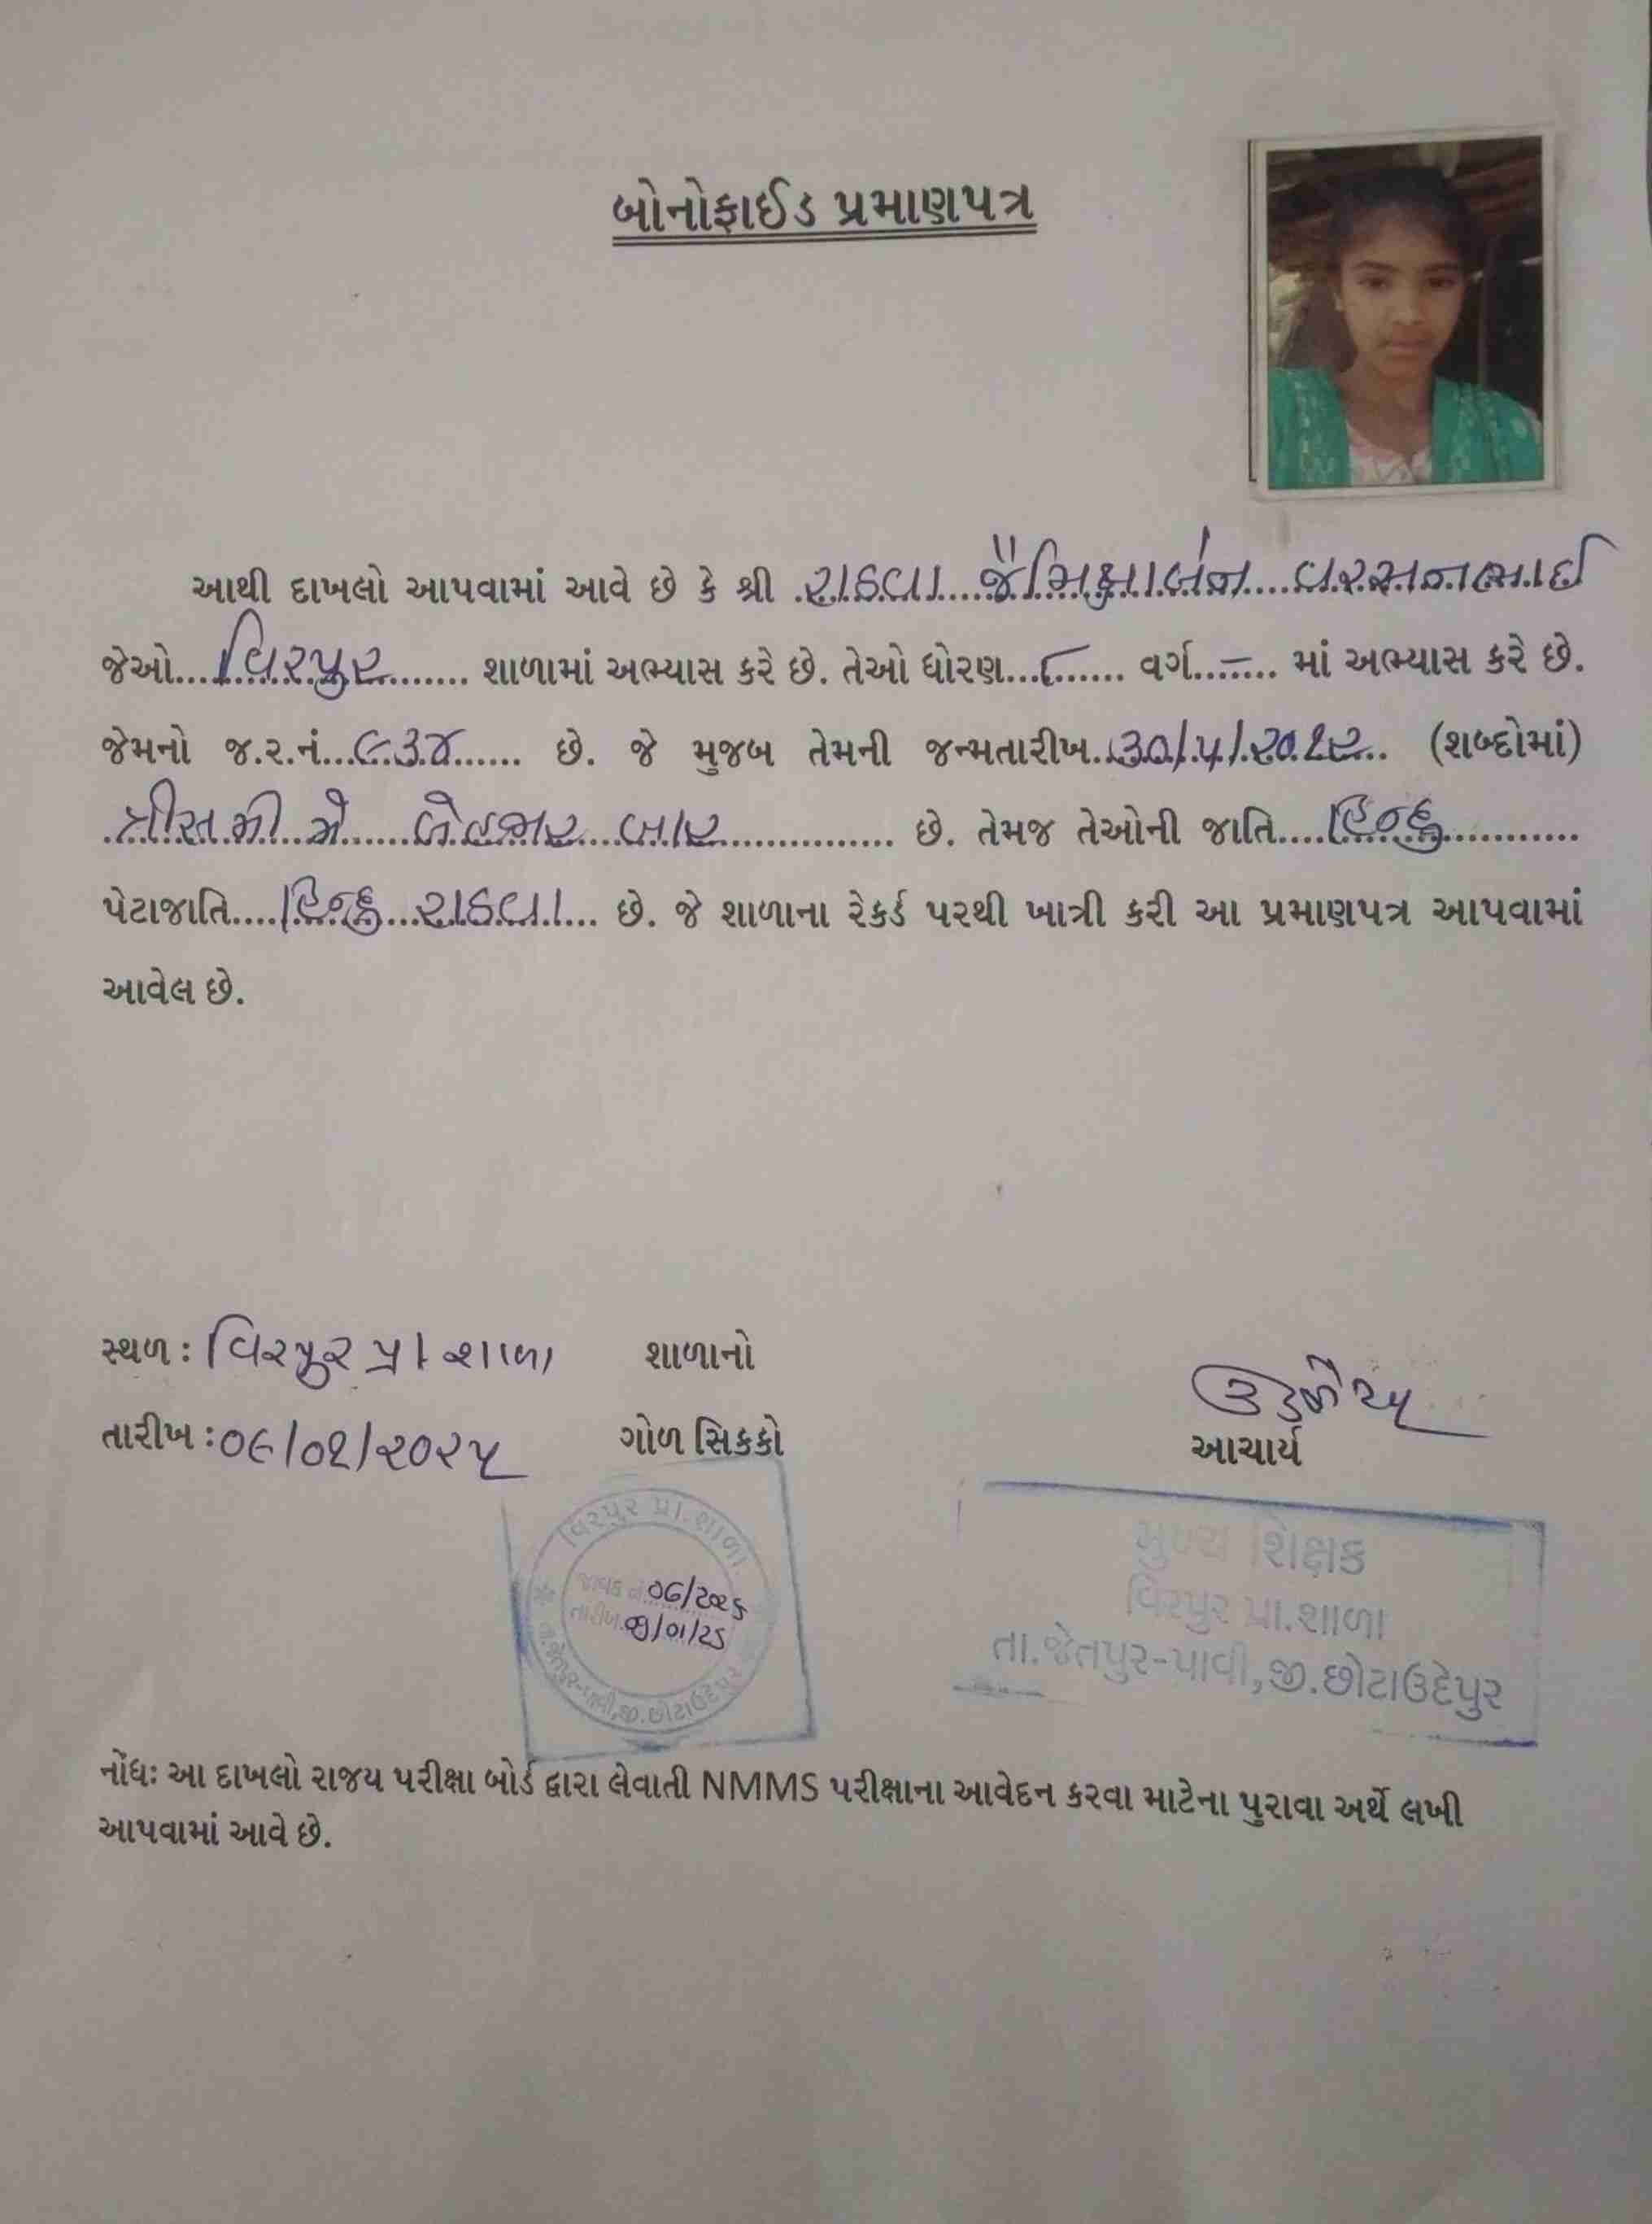 બોનોફાઈડ પ્રમાણપત્ર
આથી દાખલો આપવામાં આવે છે કે શ્રી .રાઠવા....જૈમિક્ષાબેન....વરસનભાઈ
જેઓ....વિરપુર........ શાળામાં અભ્યાસ કરે છે. તેઓ ધોરણ...૮...... વર્ગ...–.... માં અભ્યાસ કરે છે.
જેમનો જ.ર.નં...૯૩૪...... છે. જે મુજબ તેમની જન્મતારીખ..૩૦/૫/૨૦૧૨.. (શબ્દોમાં)
.ત્રીસમી મે......બેહજાર....બાર................ છે. તેમજ તેઓની જાતિ....હિન્દુ............
પેટાજાતિ....હિન્દુ...રાઠવા... છે. જે શાળાના રેકર્ડ પરથી ખાત્રી કરી આ પ્રમાણપત્ર આપવામાં
આવેલ છે.
સ્થળ : વિરપુર પ્રા. શાળા શાળાનો
તારીખ : ૦૯/૦૧/૨૦૨૫ ગોળ સિકકો
આચાર્ય
વિરપુર પ્રા.શાળા
જાવક નં.
તારીખ.
તા.જેતપુર-પાવી,જી.છોટાઉદેપુર
મુખ્ય શિક્ષક
વિરપુર પ્રા.શાળા
તા.જેતપુર-પાવી,જી.છોટાઉદેપુર
નોંધઃ આ દાખલો રાજય પરીક્ષા બોર્ડ દ્વારા લેવાતી NMMS પરીક્ષાના આવેદન કરવા માટેના પુરાવા અર્થે લખી
આપવામાં આવે છે.